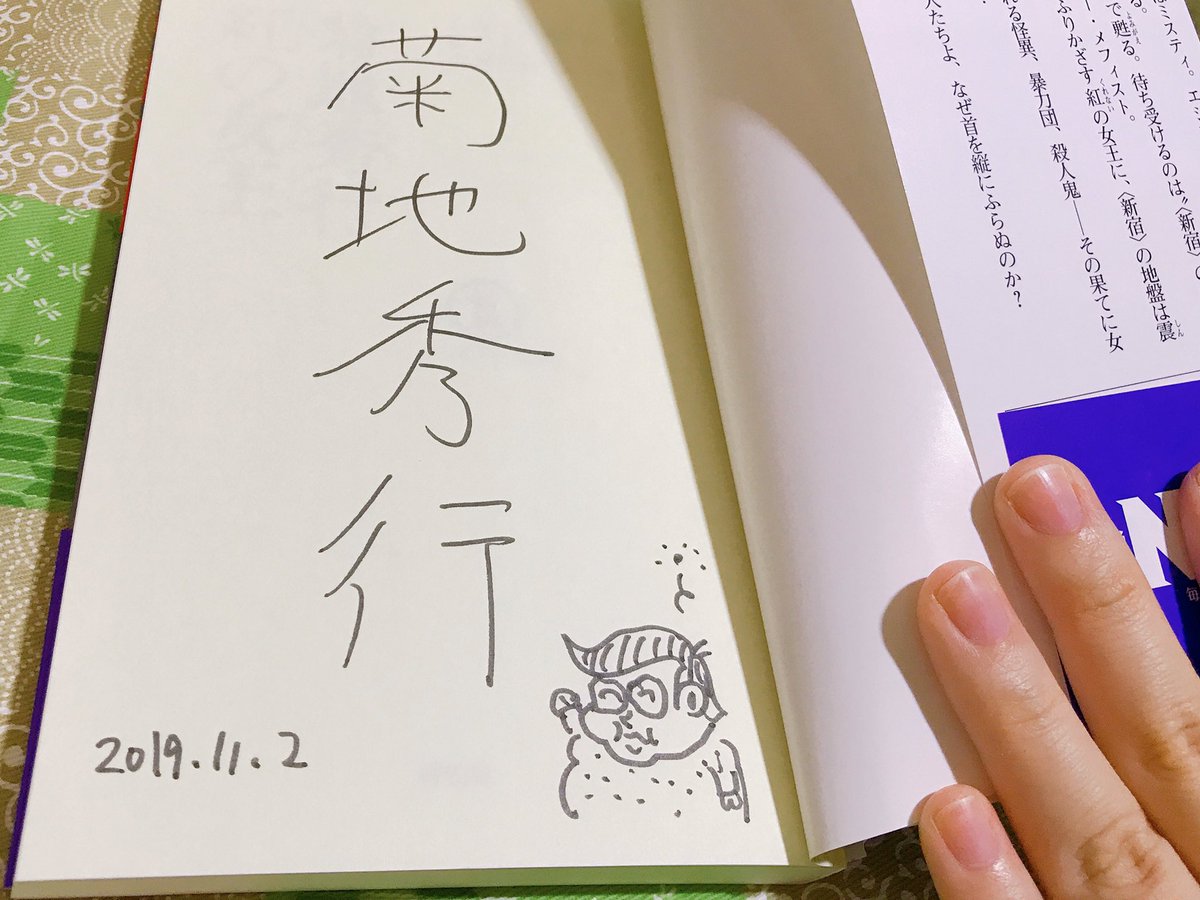 菊地秀行
2019.11.2
と
はミスティ。エジ
る。
で甦る。待ち受けるのは〝〈新宿〉の
ー・メフィスト。
ふりかざす紅の女王に、〈新宿〉の地盤は震
れる怪異、暴力団、殺人鬼――その果てに女
人たちよ、なぜ首を縦にふらぬのか?
N